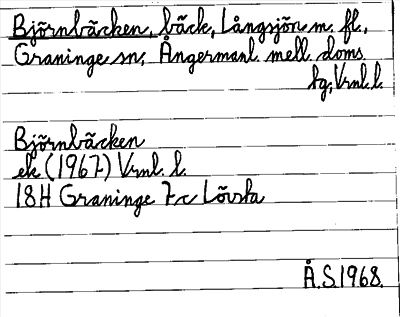 Björnbäcken, bäck, Långsjön m. fl.,
Graninge sn, Ångermanl. mell. doms
hg, Vrnl. l.
Björnbäcken
ek (1967) Vrnl. l.
18H Graninge 7c Lövsta
Å.S.1968.